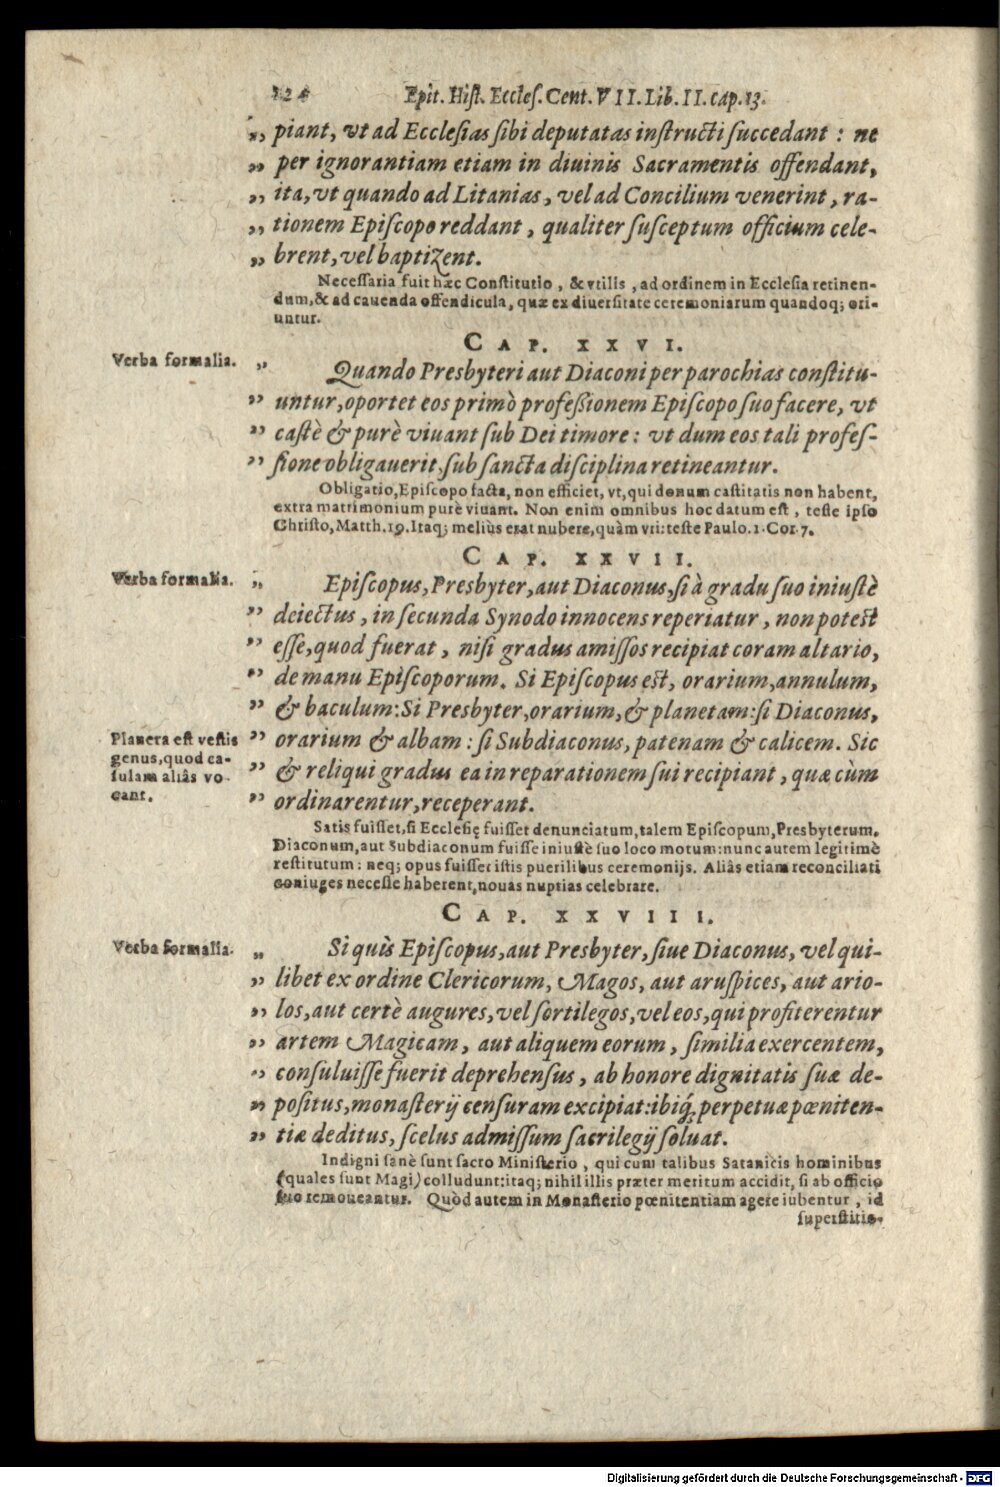 124 Epit. Hiſt. Eccleſ. Cent. VII. Lib. II. cap. 13.
„ piant, vt ad Eccleſias ſibi deputatas inſtructi ſuccedant : ne
„ per ignorantiam etiam in diuinis Sacramentis offendant,
„ ita, vt quando ad Litanias, vel ad Concilium venerint, ra-
„ tionem Epiſcopo reddant, qualiter ſuſceptum officium cele-
„ brent, vel baptizent.
Neceſſaria fuit hæc Conſtitutio, & vtilis, ad ordinem in Eccleſia retinen-
dum, & ad cauenda offendicula, quæ ex diuerſitate ceremoniarum quandoq; ori-
untur.
CAP. XXVI.
Verba formalia.
„ Quando Presbyteri aut Diaconi per parochias conſtitu-
„ untur, oportet eos primò profeßionem Epiſcopo ſuo facere, vt
„ caſtè & purè viuant ſub Dei timore: vt dum eos tali profeſ-
„ ſione obligauerit, ſub ſancta diſciplina retineantur.
Obligatio, Epiſcopo facta, non efficiet, vt, qui donum caſtitatis non habent,
extra matrimonium purè viuant. Non enim omnibus hoc datum eſt, teſte ipſo
Chriſto, Matth. 19. Itaq; meliùs erat nubere, quàm vri: teſte Paulo. 1. Cor. 7.
CAP. XXVII.
Verba formalia.
„ Epiſcopus, Presbyter, aut Diaconus, ſi à gradu ſuo iniuſtè
„ deiectus, in ſecunda Synodo innocens reperiatur, non poteſt
„ eſſe, quod fuerat, niſi gradus amiſſos recipiat coram altario,
„ de manu Epiſcoporum. Si Epiſcopus eſt, orarium, annulum,
„ & baculum: Si Presbyter, orarium, & planetam: ſi Diaconus,
Planera eſt veſtis
genus, quod ca-
ſulam aliâs vo-
cant.
„ orarium & albam: ſi Subdiaconus, patenam & calicem. Sic
„ & reliqui gradus ea in reparationem ſui recipiant, quæ cùm
„ ordinarentur, receperant.
Satis fuiſſet, ſi Eccleſię fuiſſet denunciatum, talem Epiſcopum, Presbyterum,
Diaconum, aut Subdiaconum fuiſſe iniuſtè ſuo loco motum: nunc autem legitimè
reſtitutum: neq; opus fuiſſet iſtis puerilibus ceremonijs. Aliâs etiam reconciliati
coniuges neceſſe haberent, nouas nuptias celebrare.
CAP. XXVIII.
Verba formalia.
„ Si quis Epiſcopus, aut Presbyter, ſiue Diaconus, vel qui-
„ libet ex ordine Clericorum, Magos, aut aruſpices, aut ario-
„ los, aut certè augures, vel ſortilegos, vel eos, qui profiterentur
„ artem Magicam, aut aliquem eorum, ſimilia exercentem,
„ conſuluiſſe fuerit deprehenſus, ab honore dignitatis ſuæ de-
„ poſitus, monaſterij cenſuram excipiat: ibiq́; perpetuæ pœniten-
„ tiæ deditus, ſcelus admiſſum ſacrilegij ſoluat.
Indigni ſanè ſunt ſacro Miniſterio, qui cum talibus Satanicis hominibus
(quales ſunt Magi) colludunt: itaq; nihil illis præter meritum accidit, ſi ab officio
ſuo remoueantur. Quòd autem in Monaſterio pœnitentiam agere iubentur, id
ſuperſtitio-
Digitalisierung gefördert durch die Deutsche Forschungsgemeinschaft - DFG